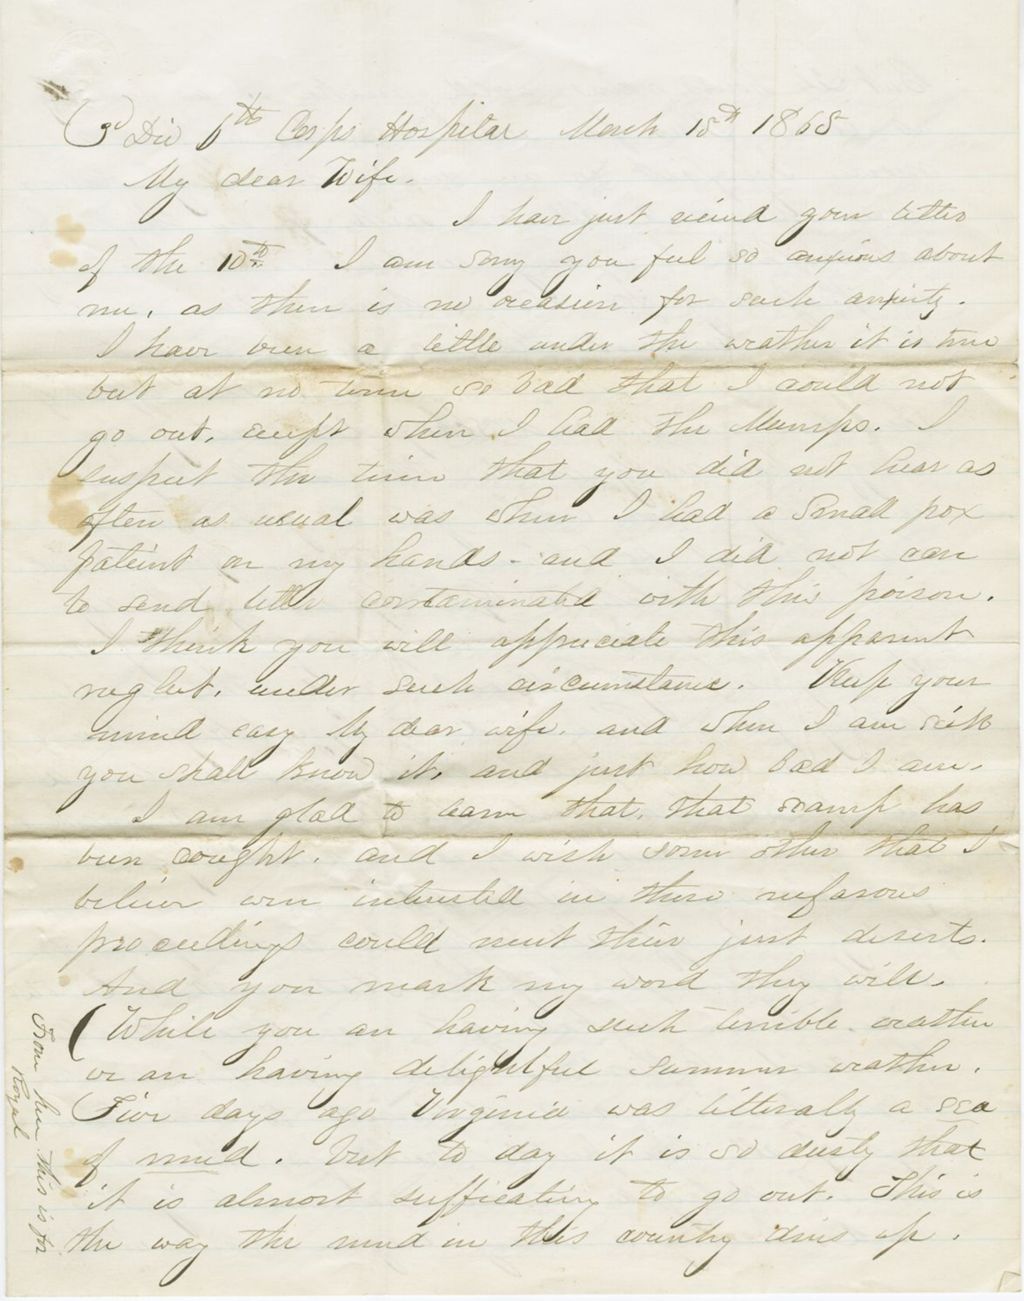 3d Div 6th Corps Hospital March 15th 1865
My dear Wife.
I have just recieved your letter
of the 10th. I am sorry you feel so anxious about
me, as there is no occasion for such anxiety.
I have been a little under the weather it is true
but at no time so bad that I could not
go out, except when I had the Mumps. I
suspect the time that you did not hear as
often as usual was when I had a Small pox
patient on my hands - and I did not care
to send letter contaminated with this poison.
I think you will appreciate this apparent
neglect, under such circumstance. Keep your
mind easy My dear wife, and when I am sick
you shall know it, and just how bad I am.
I am glad to learn that, that scamp has
been caught, and I wish some other that I
believe were interested in there nefarous
proceedings could meet their just deserts.
And you mark my word they will.
(While you are having such terrible weather
we are having delightful summer weather.
Five days ago Virginia was litterally a sea
of mud. but to day it is so dusty that
it is almost sufficating to go out. This is
the way the mud in this country dries up.
From here this is for
Royal